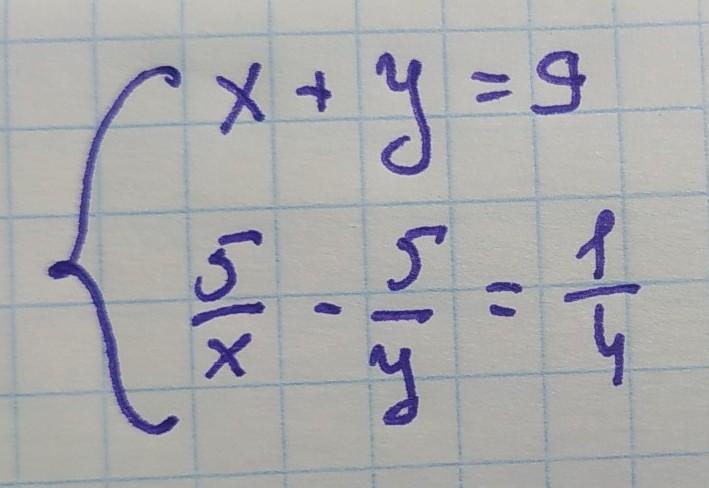 x + y = 9
5/x - 5/y = 1/4